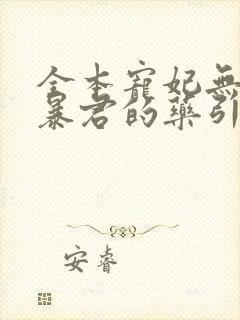 全本寵妃無
暴君的藥引
安睿